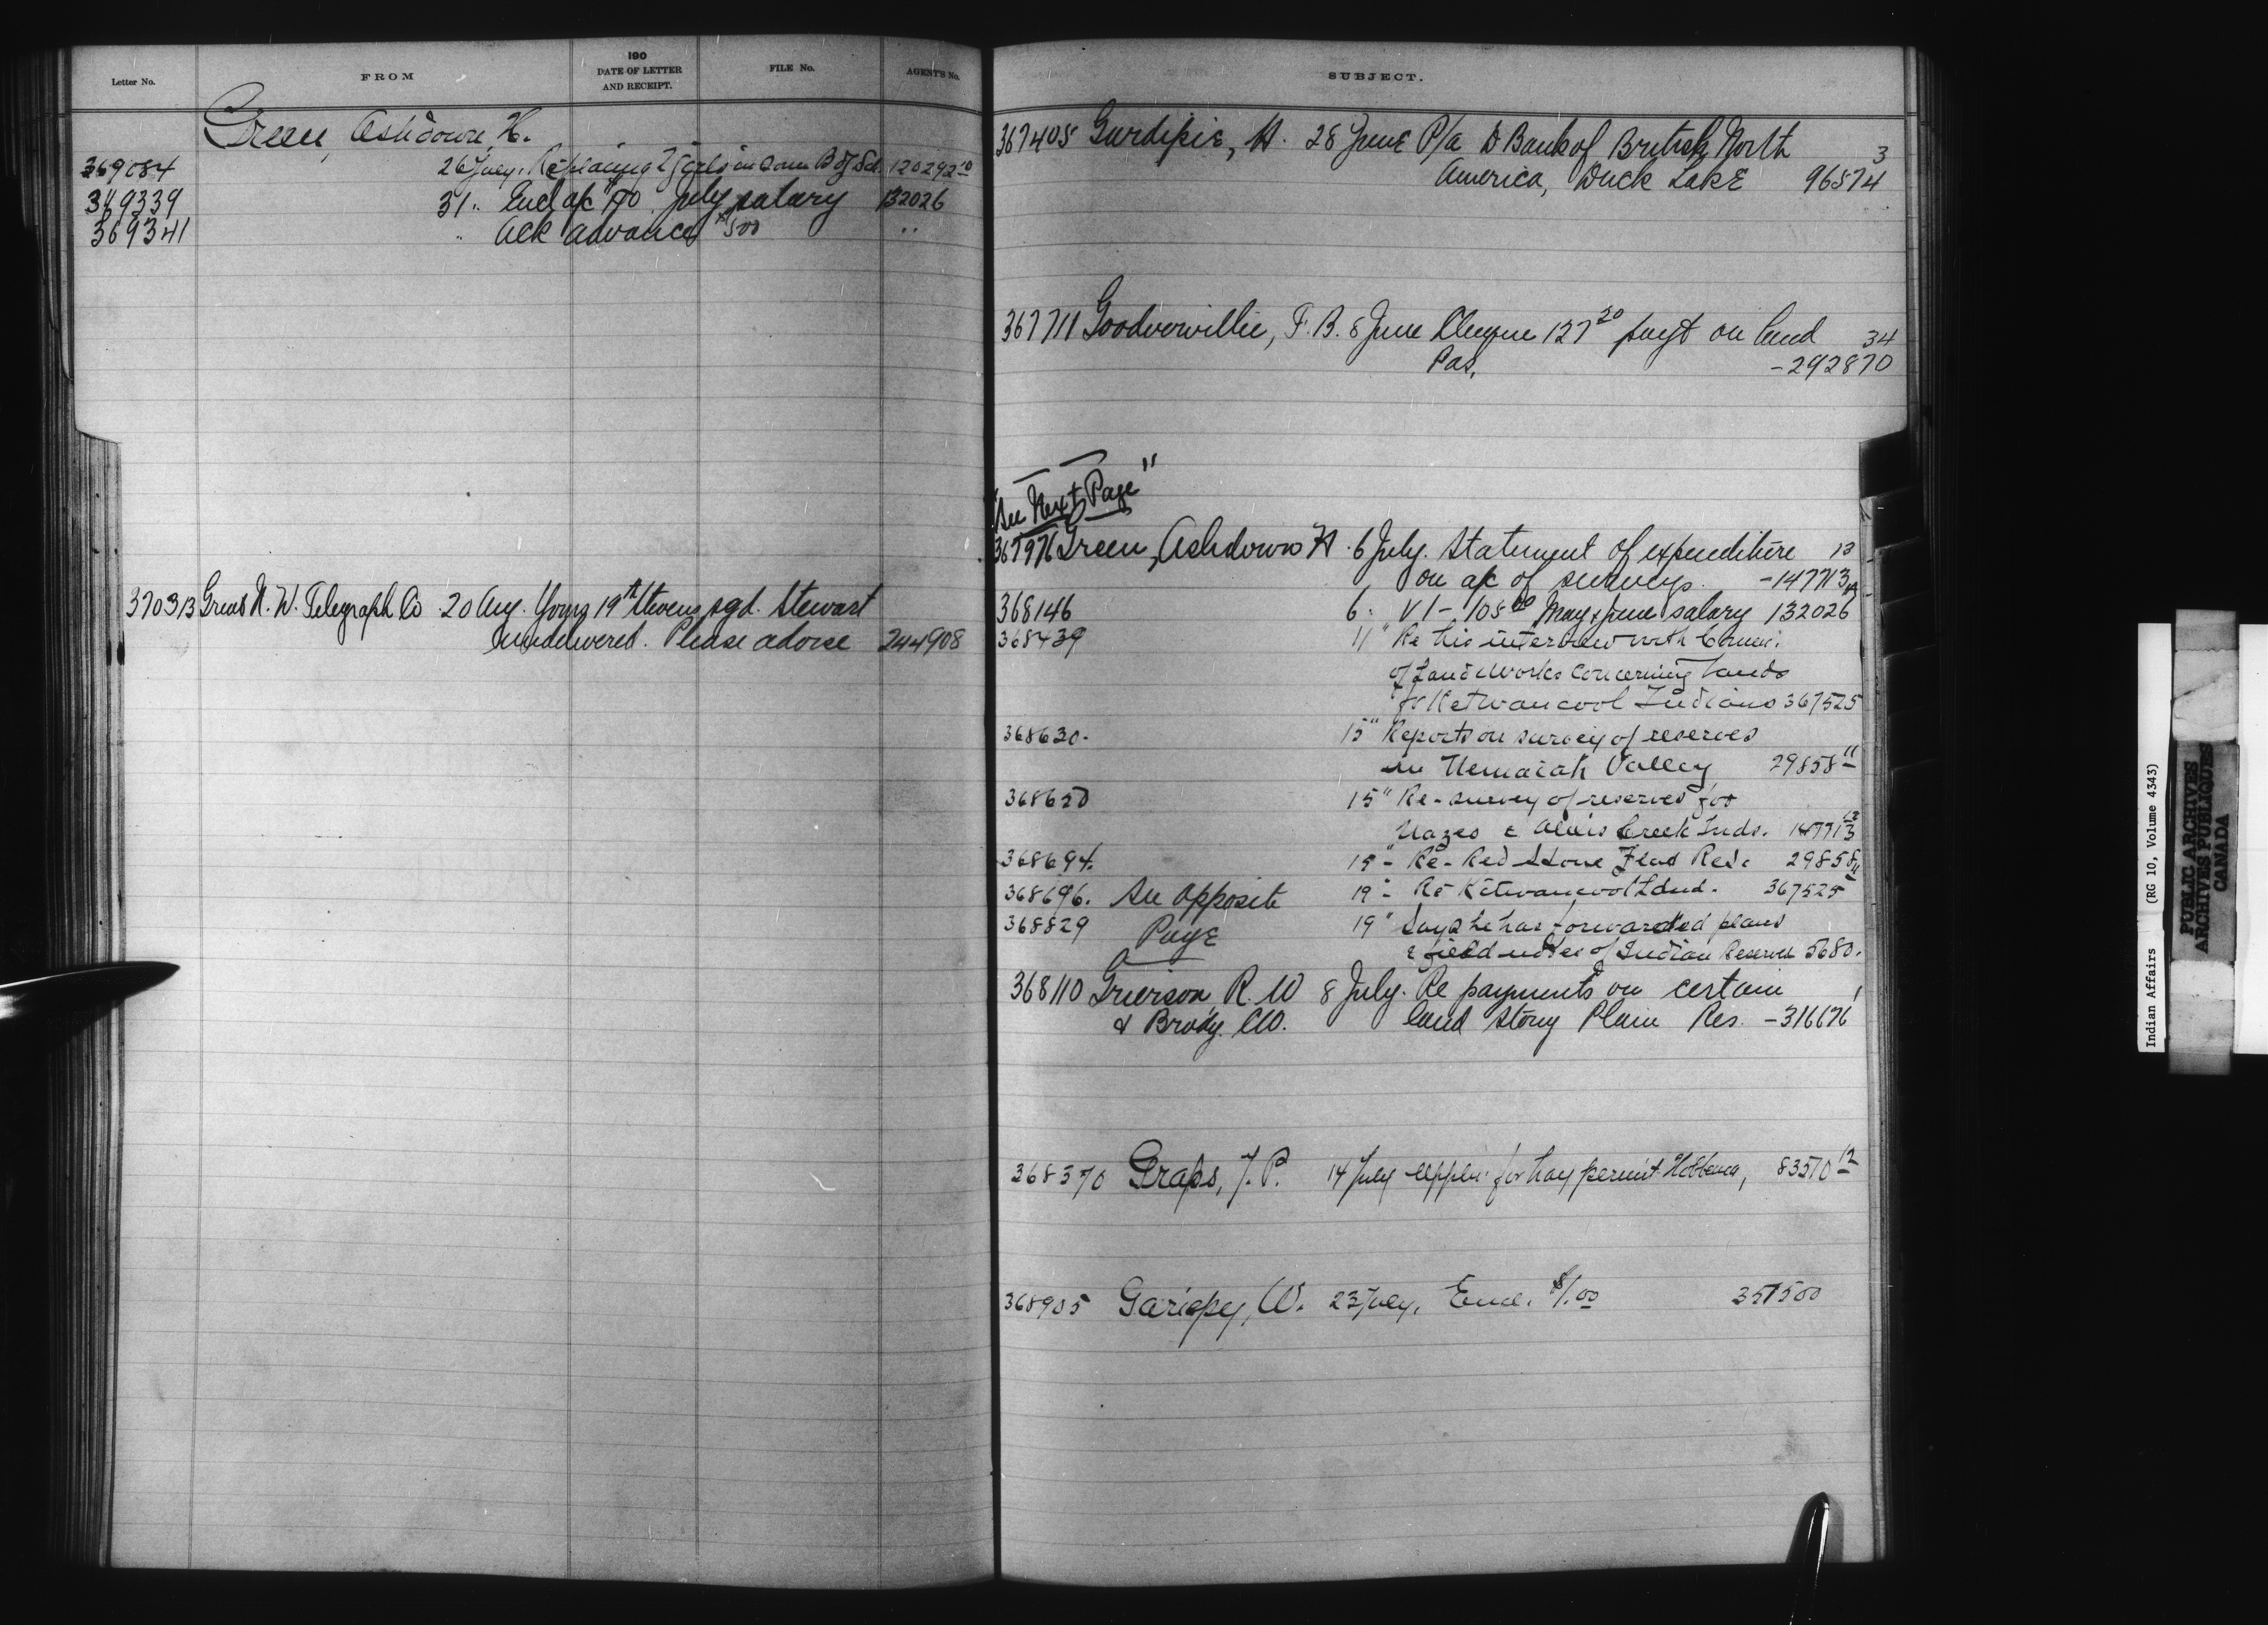 Letter No. FROM 190 DATE OF LETTER AND RECEIPT. FILE No. AGENT'S No.
Green, Ashdown, H.
369084 26 July. Re placing 2 girls in B of Sch. 120292 10
369339 31 " Encl a/c July salary 132026
369341 " Ack advance $500 "
370313 Great N. W. Telegraph Co 20 Aug. Yours 19th Stevens sgd. Stewart
undelivered. Please advise 244908
SUBJECT.
367405 Gurdipie, A. 28 June P/a D Bank of British North 3
America, Duck Lake 96574
367711 Goodverwillie, F. B. 8 June Cheque 127 20 payt on land 34
Pas. -292870
"See Next Page"
367976 Green, Ashdown H. 6 July. Statement of expenditure 13
on a/c of surveys. -147713
368146 6 " V 1 - 108 00 May & June salary 132026
368439 11 " Re his interview with Comm:
of Land & Works concerning lands
for Ketwancool Indians 367525
368630. 15 " Reports on survey of reserves
in Nemaiah Valley 29858 11
368650 15 " Re-survey of reserves for
Nazco & Alexis Creek Inds. 147713 12
368694. 15 " Re- Red Stone Flat Res. 29858 11
368696. See opposite 19 " Re Kitwancool Ind. 367525
368829 Page 19 " Says he has forwarded plans
& field notes of Indian Reserves 5680.
368110 Grierson R. W 8 July. Re payments on certain 1
& Brody. W. land Stony Plain Res. -316676
368370 Graps, J. P. 14 July Appln for hay permit Hobbema, 83570 12
368905 Gariepy, W. 23 July. Encl. $1.00 357500
Indian Affairs (RG 10, Volume 4343)
PUBLIC ARCHIVES
ARCHIVES PUBLIQUES
CANADA